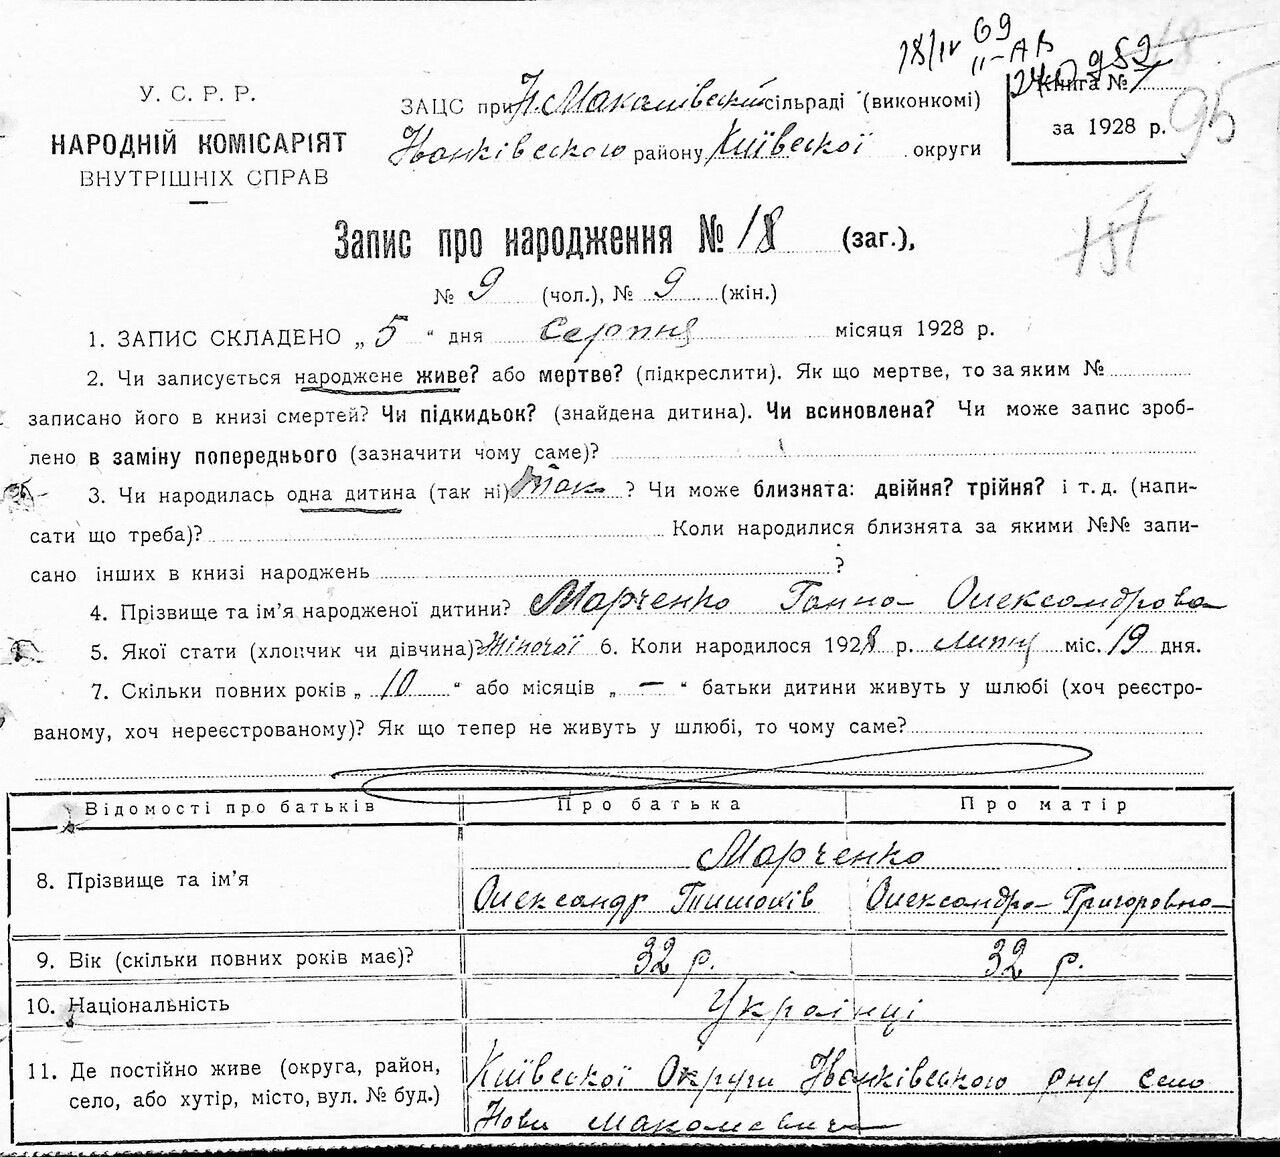 18/IV 69
II-АВ
240952
18
У. С. Р. Р.
НАРОДНІЙ КОМІСАРІЯТ
ВНУТРІШНІХ СПРАВ
ЗАЦС при Н. Макалівській сільраді (виконкомі)
Іванківського району Київської округи
Книга № 1
за 1928 р.
95
157
Запис про народження № 18 (заг.),
№ 9 (чол.), № 9 (жін.)
1. ЗАПИС СКЛАДЕНО „ 5 “ дня серпня місяця 1928 р.
2. Чи записується народжене живе? або мертве? (підкреслити). Як що мертве, то за яким №
записано його в книзі смертей? Чи підкидьок? (знайдена дитина). Чи всиновлена? Чи може запис зроб-
лено в заміну попереднього (зазначити чому саме)?
3. Чи народилась одна дитина (так ні) так ? Чи може близнята: двійня? трійня? і т. д. (напи-
сати що треба)? Коли народилися близнята за якими №№ запи-
сано інших в книзі народжень ?
4. Прізвище та ім’я народженої дитини? Марченко Ганна Олександрова
5. Якої стати (хлопчик чи дівчина)? Жіночої 6. Коли народилося 1928 р. липня міс. 19 дня.
7. Скільки повних років „ 10 “ або місяців „ — “ батьки дитини живуть у шлюбі (хоч реєстро-
ваному, хоч нереєстрованому)? Як що тепер не живуть у шлюбі, то чому саме?
Відомості про батьків Про батька Про матір
8. Прізвище та ім’я Марченко
Олександр Тимошів Олександра Григоровна
9. Вік (скільки повних років має)? 32 р. 32 р.
10. Національність Українці
11. Де постійно живе (округа, район, Київської Округи Іванківського рну село
село, або хутір, місто, вул. № буд.) Нови Макалевича